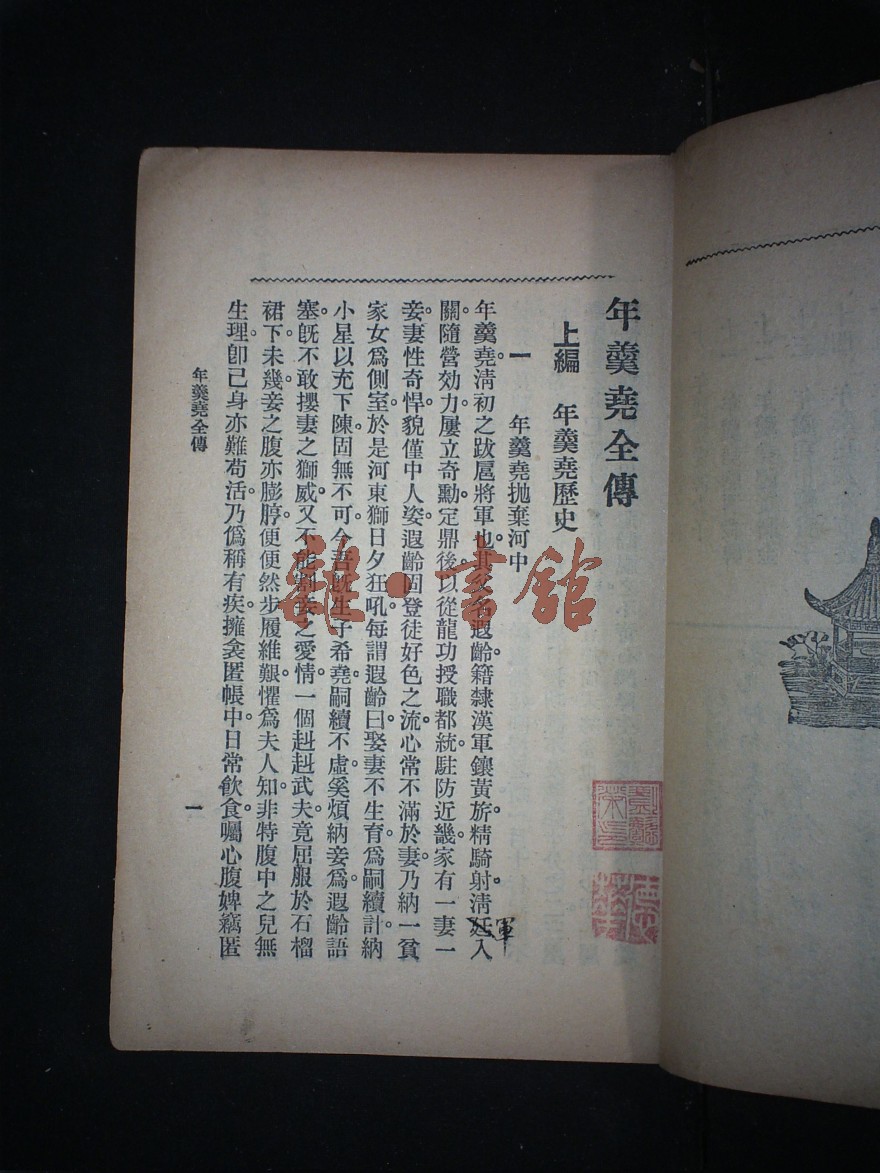 年羹堯全傳
上編　年羹堯歷史
一　年羹堯拋棄河中
年羹堯。淸初之跋扈將軍也。其父名遐齡。籍隸漢軍鑲黃旂。精騎射。淸廷入
軍
關。隨營効力。屢立奇勳。定鼎後。以從龍功。授職都統。駐防近畿。家有一妻一
妾。妻性奇悍。貌僅中人姿。遐齡固登徒好色之流。心常不滿於妻。乃納一貧
家女爲側室。於是河東獅日夕狂吼。每謂遐齡曰。娶妻不生育。爲嗣續計。納
小星以充下陳。固無不可。今吾旣生子希堯。嗣續不虛。奚煩納妾爲。遐齡語
塞。旣不敢攖妻之獅威。又不能割妾之愛情。一個赳赳武夫。竟屈服於石榴
裙下。未幾。妾之腹亦膨脝。便便然步履維艱。懼爲夫人知。非特腹中之兒無
生理。卽己身亦難苟活。乃僞稱有疾。擁衾匿帳中。日常飮食。囑心腹婢竊匿
年羹堯全傳
一
雜·書館